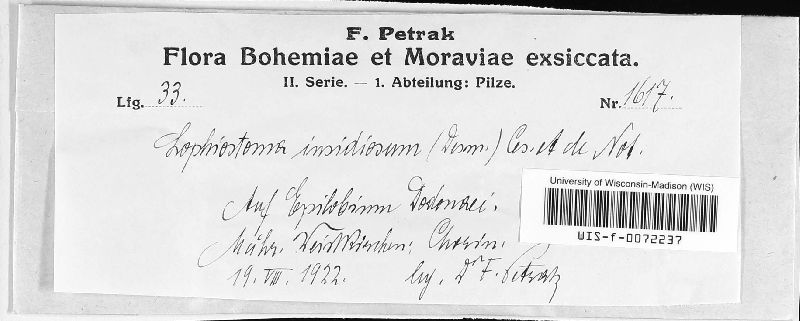 F. Petrak
Flora Bohemiae et Moraviae exsiccata.
II. Serie. — 1. Abteilung: Pilze.
Lfg. 33. Nr. 1617.
Lophiostoma insidiosum (Desm.) Ces. et de Not.
Auf Epilobium Dodonaei.
Mähr. Weisskirchen: Chorin.
19. VIII. 1922. leg. Dr F. Petrak
University of Wisconsin-Madison (WIS)
WIS-f-0072237